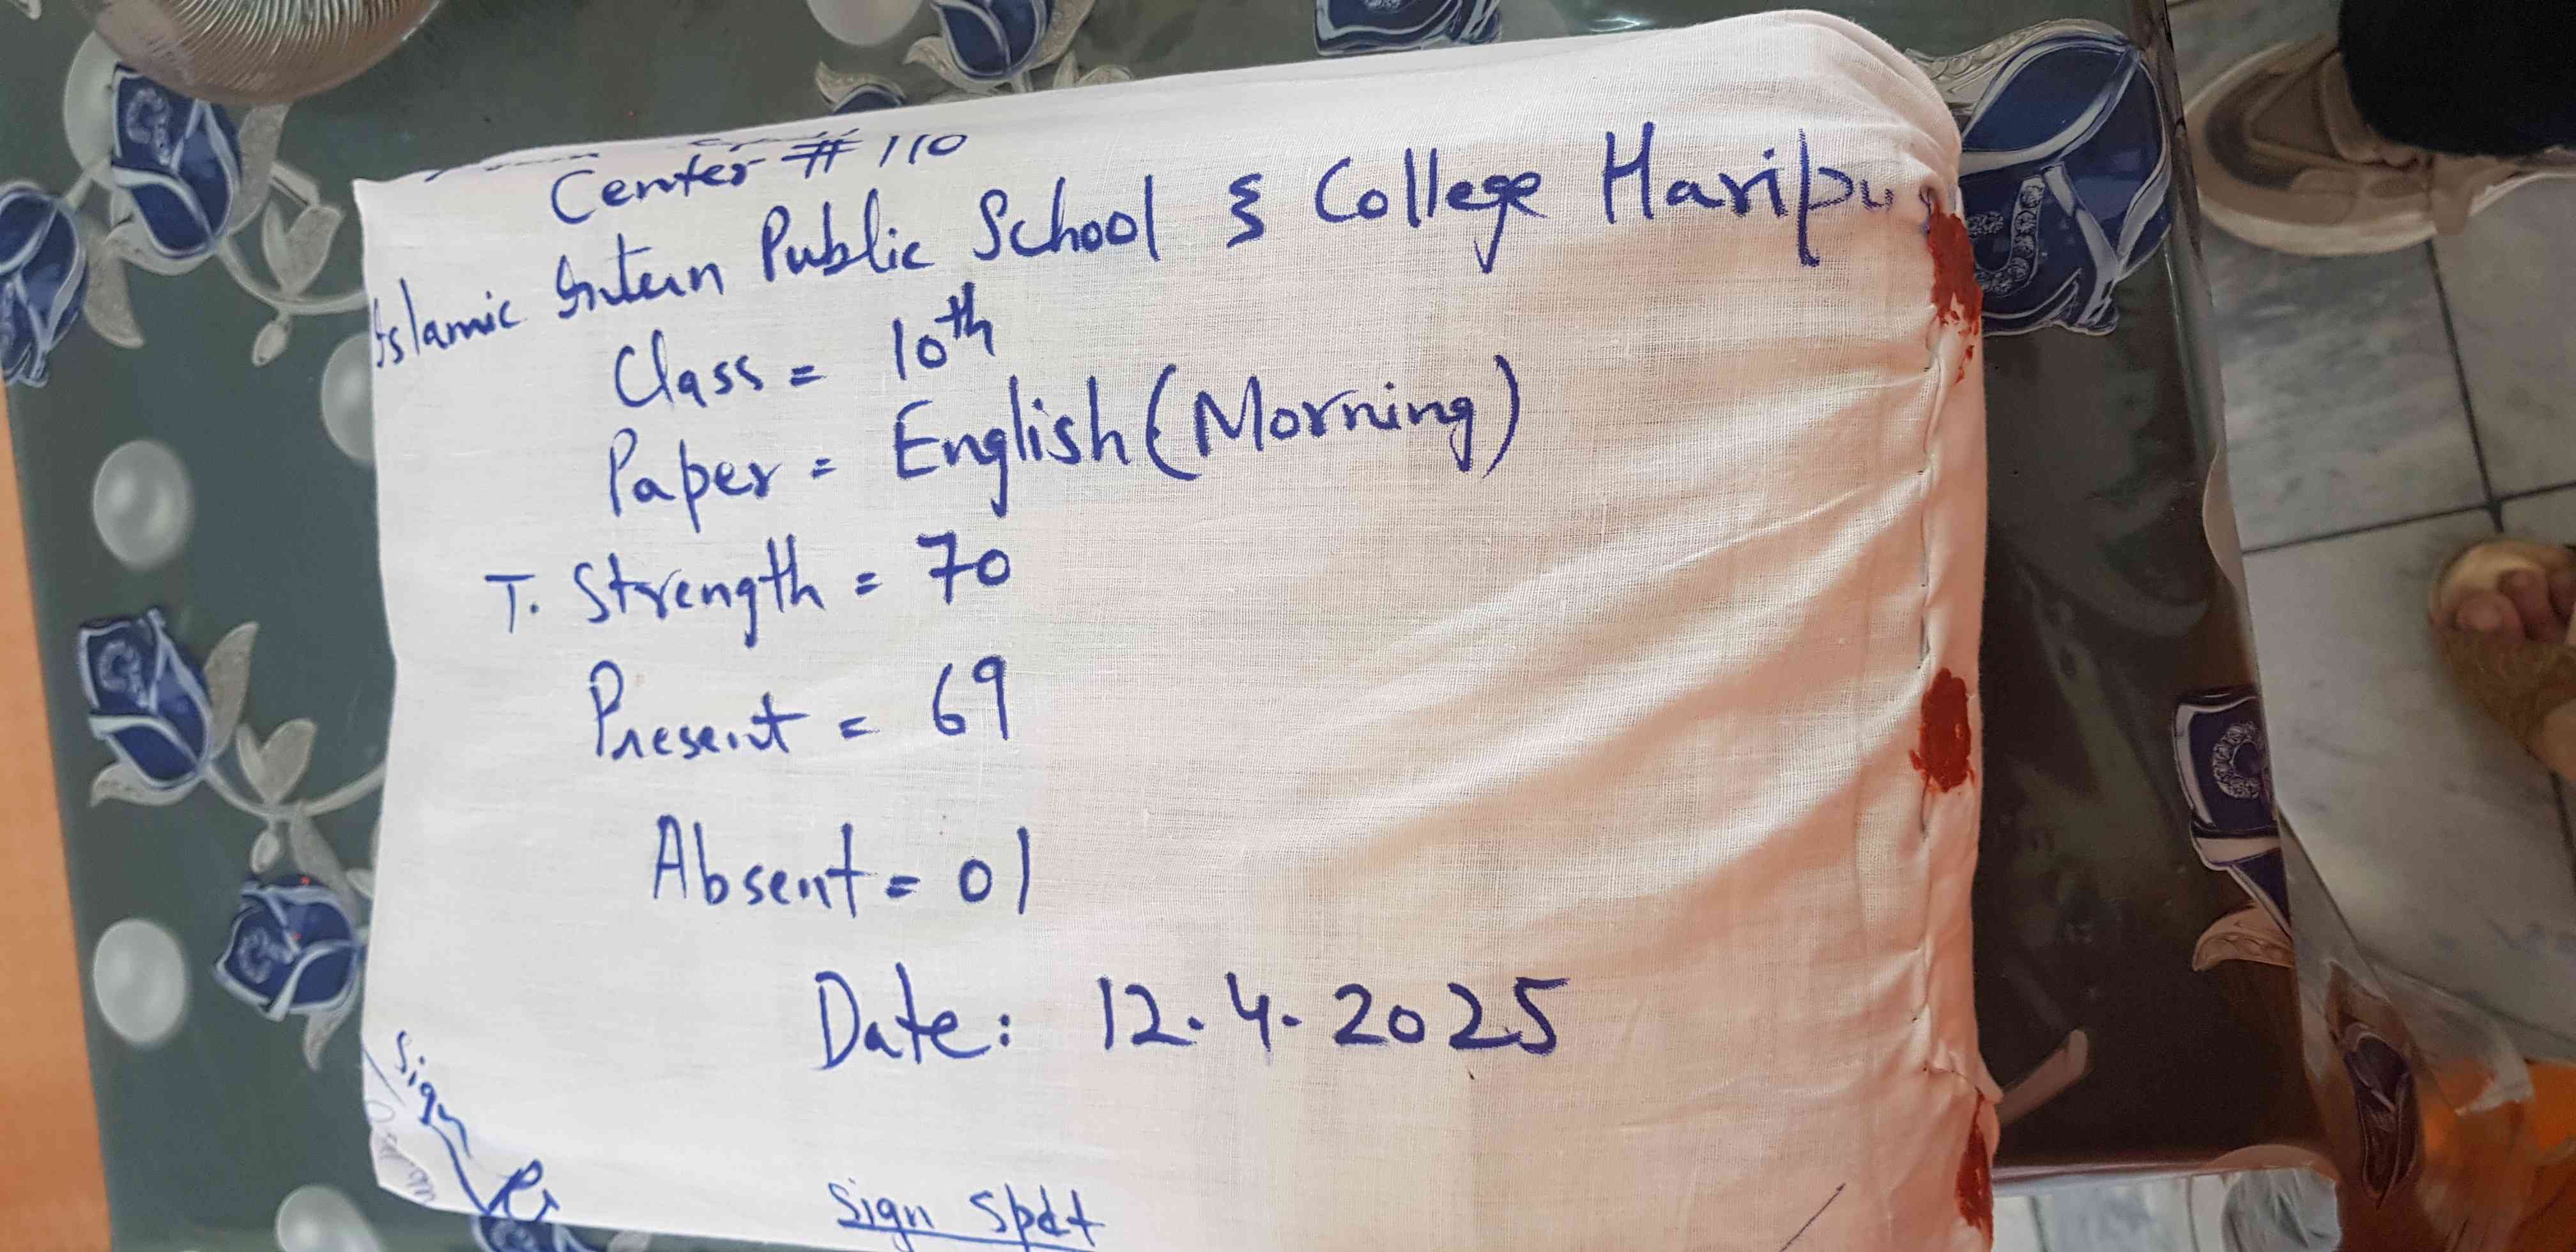 Center # 110
Islamic Intern Public School & College Haripur
Class = 10th
Paper = English (Morning)
T. Strength = 70
Present = 69
Absent = 01
Date: 12.4.2025
Sign
Sign Spdt